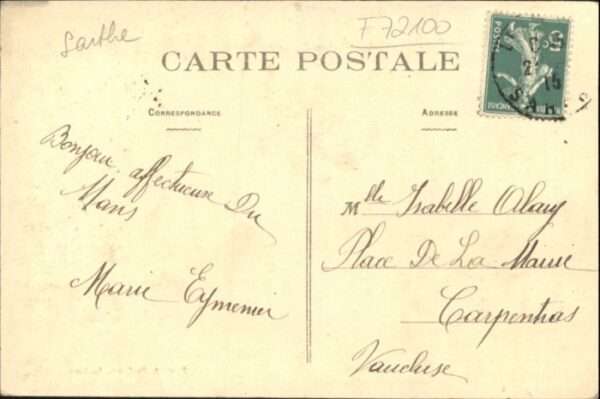 Sarthe
F72100
CARTE POSTALE
CORRESPONDANCE
ADRESSE
Bonjour affectueux Du
Mans
Marie Eymenier
Mlle Isabelle Alary
Place De La Mairie
Carpentras
Vaucluse